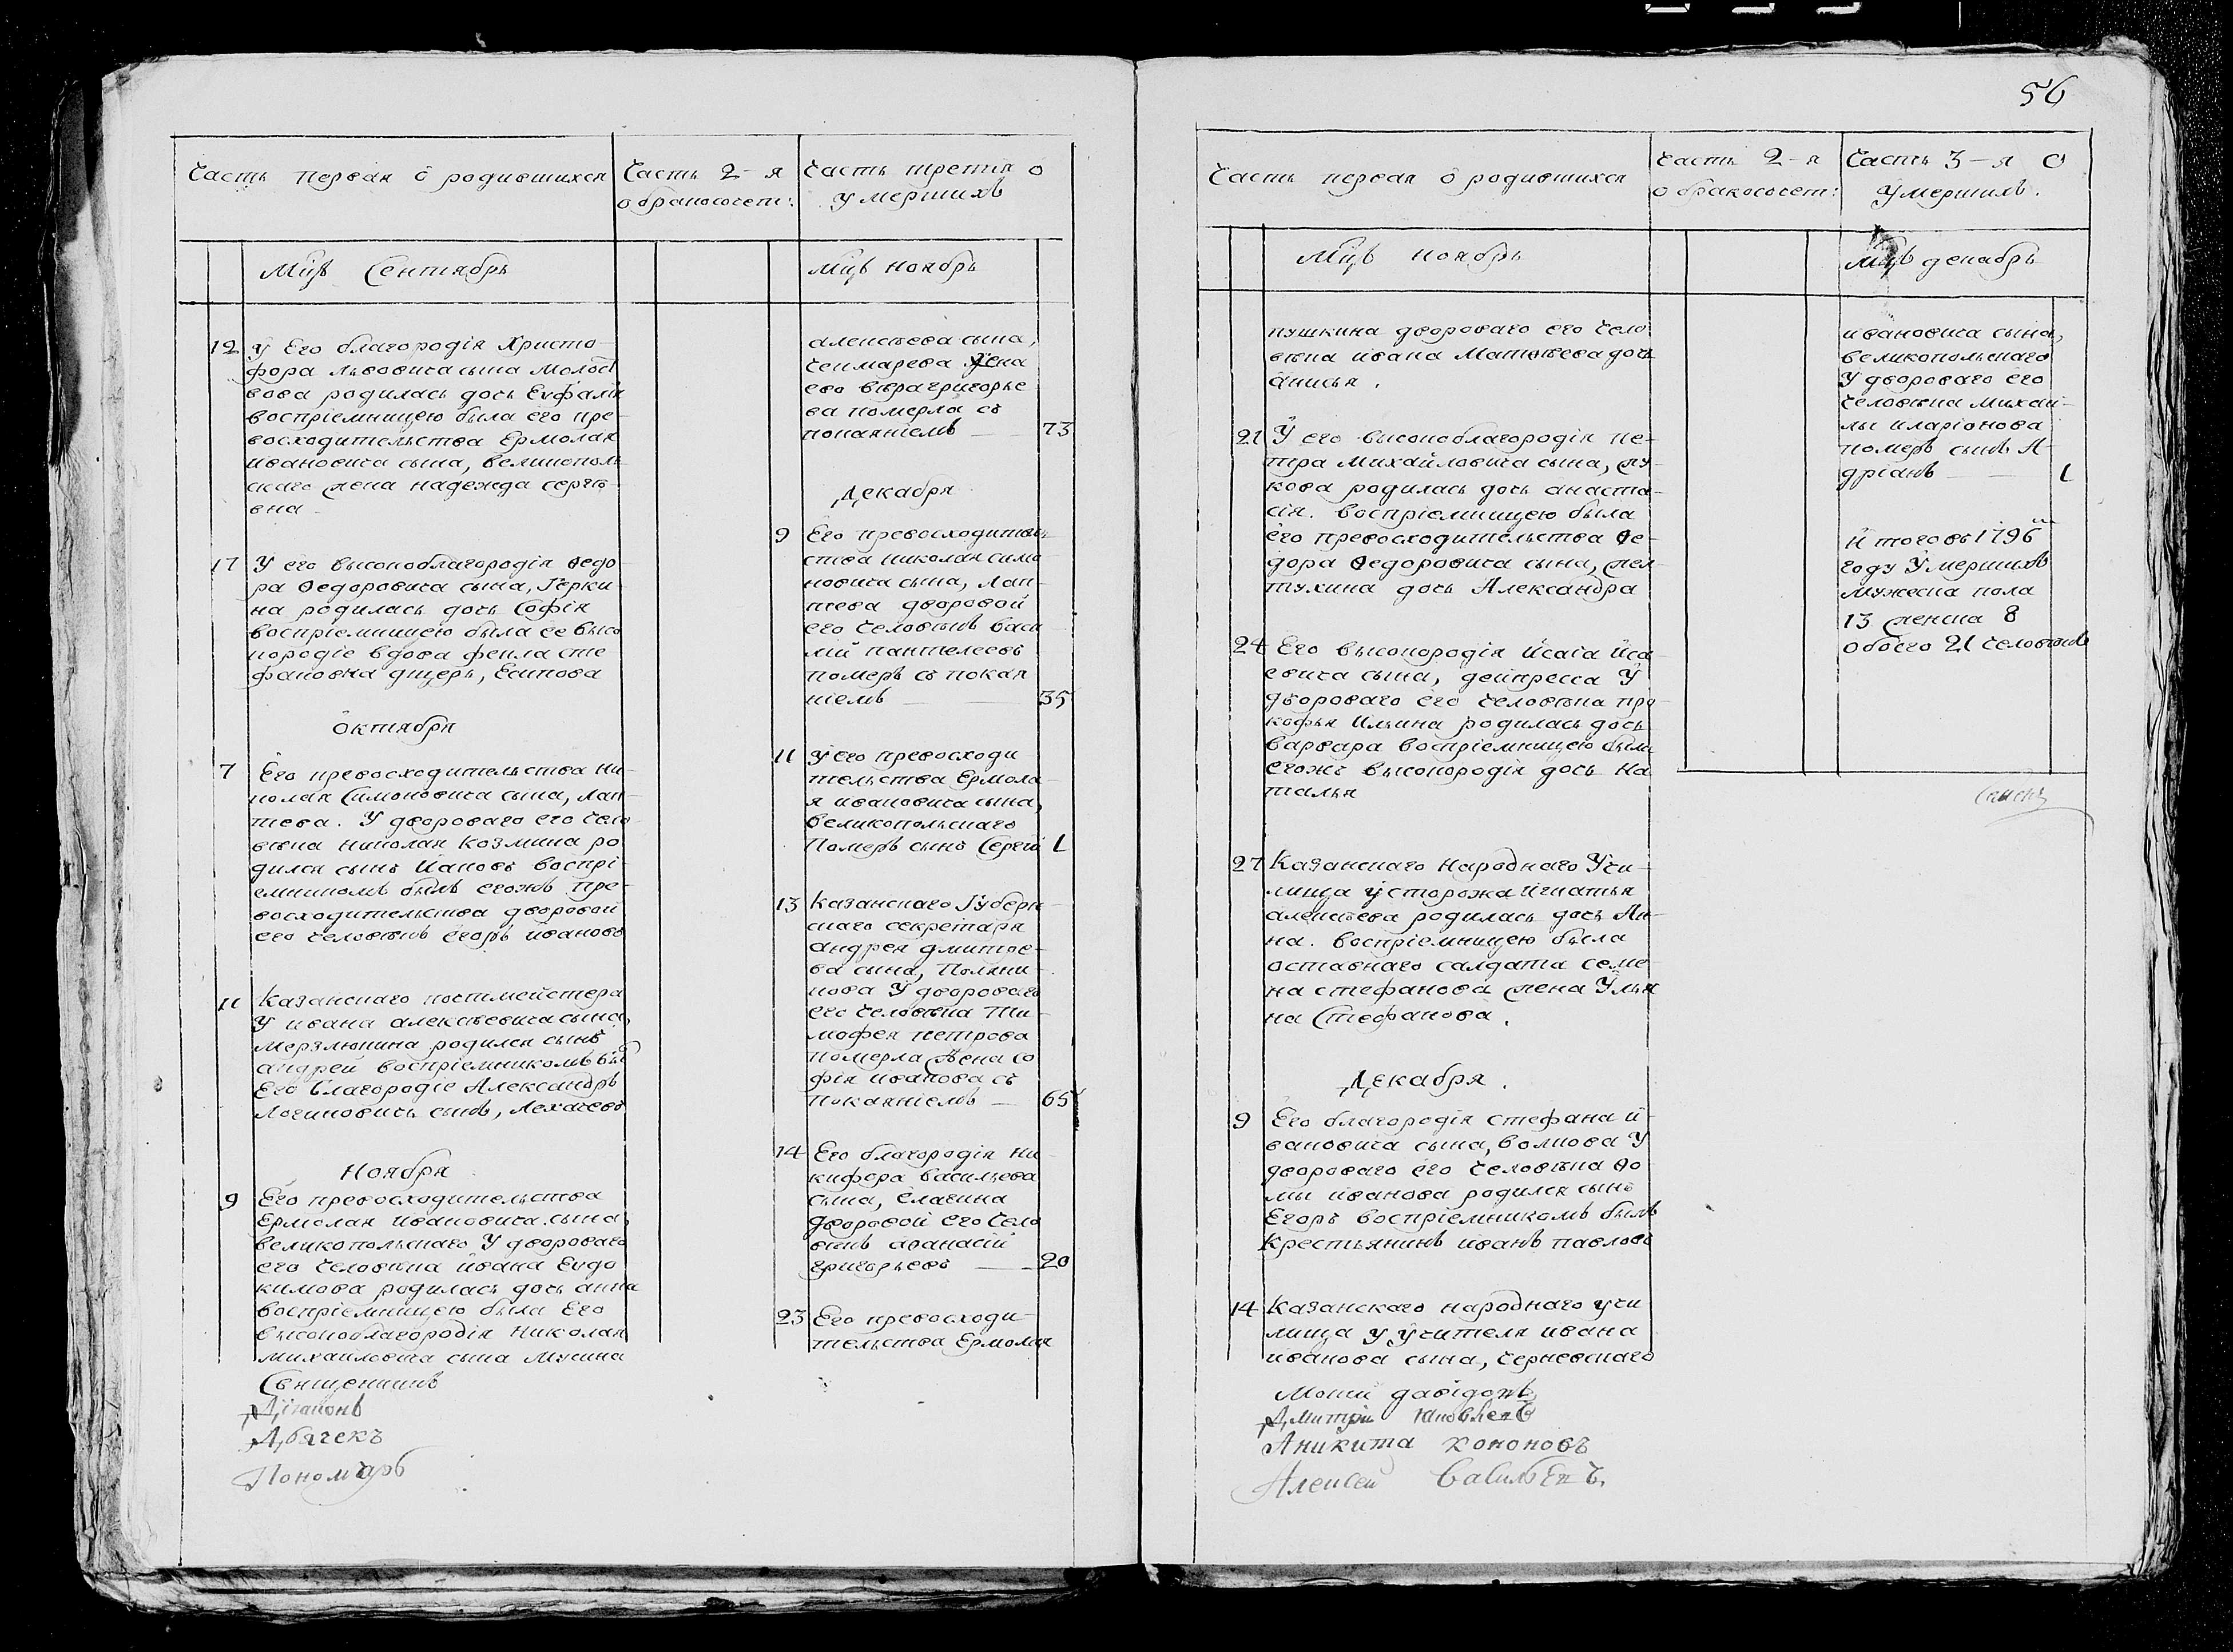 Часть первая о родившихся
Часть 2-я
о бракосочет:
Часть третiя о
умершихъ
Мцъ Сентябрь
12 У Его благородiя Христо-
фора Львовича сына Молост
вова родилась дочь Евфалiя
воспрiемницею была его пре-
восходительства Ермолая
ивановича сына, великополь
скаго жена надежда серге-
вна
17 У его высокоблагородiя Ѳедо
ра Ѳедоровича сына, Герки-
на родилась дочь Софiя
воспрiемницею была ее высо
кородiе вдова фекла сте
фановна дщерь, Есипова
октября
7 Его превосходительства ни-
колая Симоновича сына, лап-
тева. У двороваго его чело
вѣка николая козмина ро
дился сынъ Иаковъ воспрi-
емникомъ былъ егожъ пре-
восходительства дворовой
его человѣкъ егоръ ивановъ
11 Казанскаго постмейстера
У ивана алексѣевича сына,
мерзлюкина родился сынъ
андрей воспрiемникомъ бы
Его благородiе Александръ
логиновичь сынъ, Лехачевъ
Ноября
9 Его превосходительства
Ермолая ивановича сына,
великопольскаго У двороваго
его человѣка ивана Евдо
кимова родилась дочь анна
воспрiемницею была Его
высокоблагородiя николая
михайловича сына Мусина
Мцъ ноябрь
алексѣева сына,
чекмарева жена
ево вѣра григорье
ва померла съ
покаянiемъ — 73
Декабря
9 Его превосходитель
ства николая симо
новича сына, лап-
тева дворовой
его человѣкъ васи
лiй пантелеевъ
померъ съ покая
нiемъ — 35
11 У его превосходи
тельства Ермола-
я ивановича сына,
великопольскаго
Померъ сынъ Сергѣй 1
13 Казанскаго Губерн-
скаго секретаря
андрея дмитрiе-
ва сына, Поляни-
нова У двороваго
его человѣка Ти-
мофея петрова
померла жена со
фiя иванова съ
покаянiемъ — 65
14 Его благородiя ни
кифора васильева
сына, Елагина
дворовой его чело
вѣкъ аѳанасiй
григорьевъ — 20
23 Его превосходи-
тельства Ермолая
Священникъ
Дiаконъ
Дьячекъ
Пономарь
56
Часть первая о родившихся
Часть 2-я
о бракосочет:
Часть 3-я о
умершихъ.
Мцъ ноябрь
пушкина двороваго его чело
вѣка ивана Матвѣева дочь
анисья.
21 У его высокоблагородiя пе-
тра михайловича сына, жу-
кова родилась дочь анаста-
сiя. воспрiемницею была
его превосходительства Ѳе-
дора Ѳедоровича сына, жел
тухина дочь Александра
24 Его высокородiя исаiа иса
евича сына, дейпресса У
двороваго его человѣка про
кофья ильина родилась дочь
варвара воспрiемницею была
егожъ высокородiя дочь На
талья
27 Казанскаго народнаго Учи-
лища у сторожа игнатья
алексѣева родилась дочь Ан-
на. воспрiемницею была
оставнаго салдата семе-
на стефанова жена Улья
на Стефанова.
Декабря.
9 Его благородiя стефана и-
вановича сына, волкова У
двороваго его человѣка Ѳо
мы иванова родился сынъ
Егоръ воспрiемникомъ былъ
крестьянинъ иванъ павловъ
14 Казанскаго народнаго учи
лища у учителя ивана
иванова сына, черневскаго
Мцъ декабрь
ивановича сына,
великопольскаго
У двороваго его
человѣка михай-
лы иларiонова
померъ сынъ А-
дрiанъ — 1
и того въ 1796
году Умершихъ
мужеска пола
13 женска 8
обоего 21 человѣкъ
Мокей давидовъ
Дмитрiй яковлевъ
Аникита кононовъ
Алексей Васильевъ.